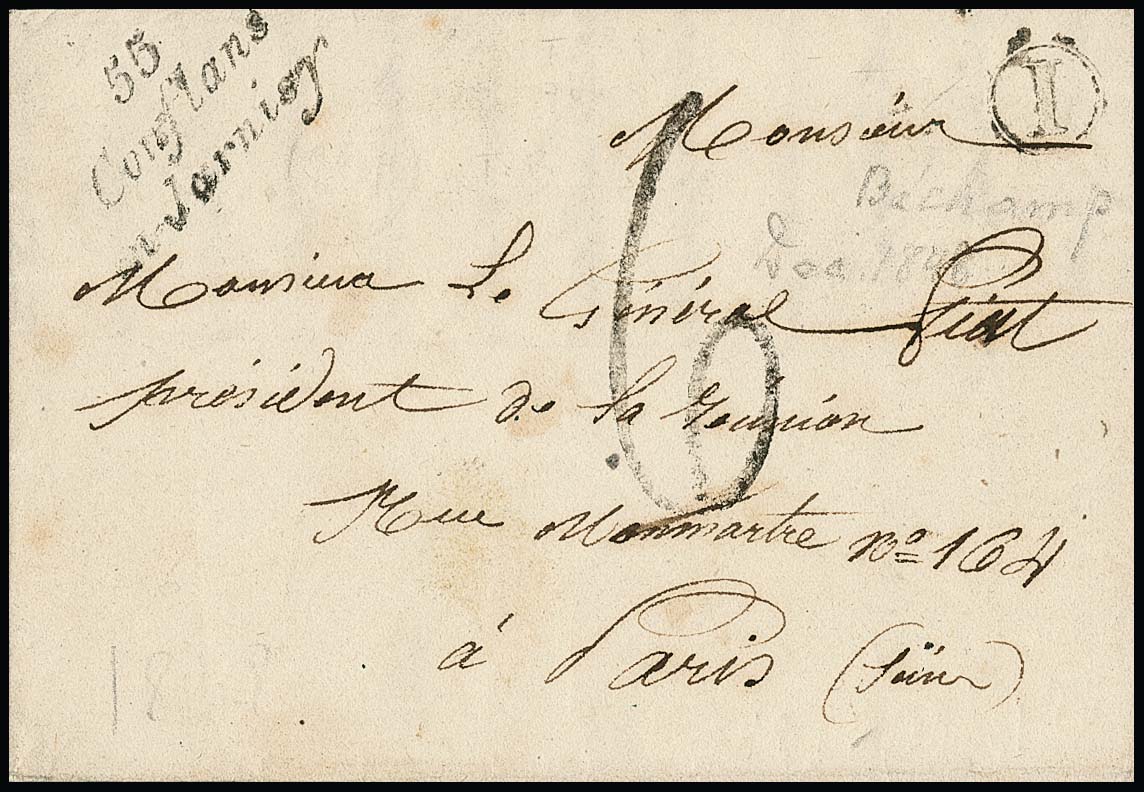 55
Conflans
en Jarnisy
I
Monsieur
Béchamp
Monsieur Le Général Piat
6
président de la reunion
Rue Monmartre no 164
à Paris (Seine)